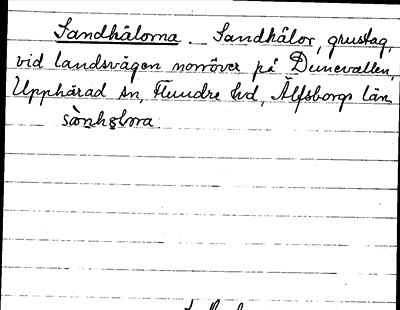 Sandhålorna. Sandhålor, grustag,
vid landsvägen norröver på Dunevallen,
Upphärad sn, Flundre hd, Älfsborgs län.